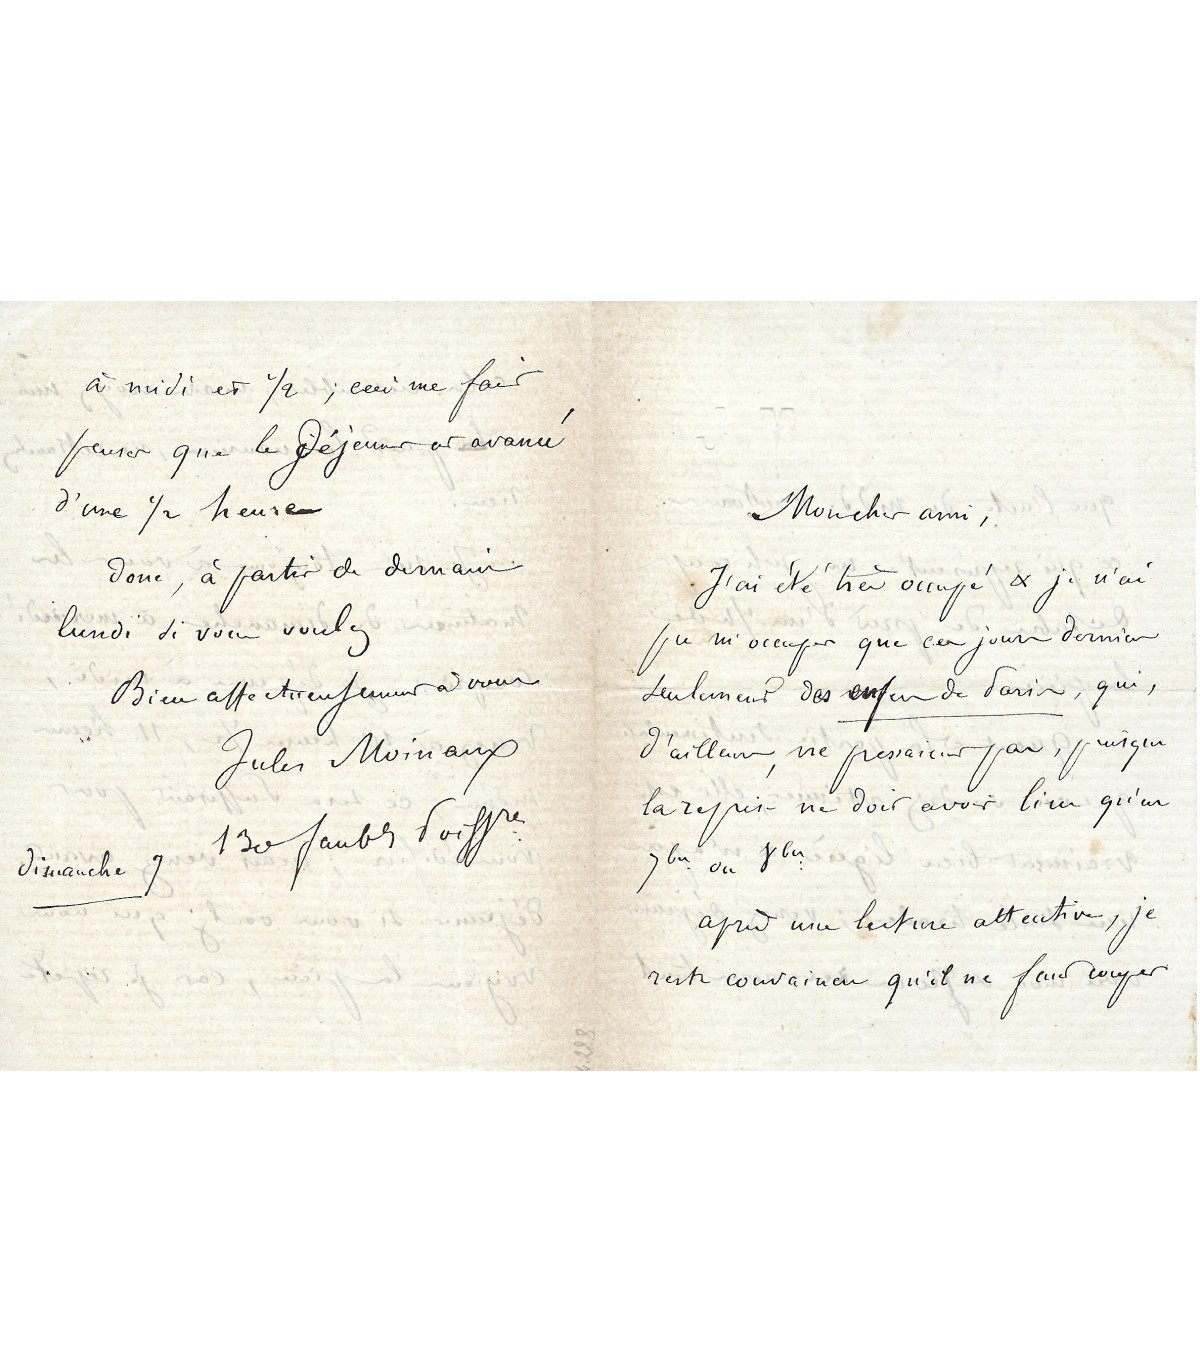 Mon cher ami,
J'ai été très occupé & je n'ai
pu m'occuper que ces jours derniers
seulement des enfers de Paris, qui,
d'ailleurs, ne pressaient pas, puisque
la reprise ne doit avoir lieu qu'en
7bre ou 8bre
après une lecture attentive, je
reste convaincu qu'il ne faut couper
à midi et 1/2 ; ceci me fait
penser que le Déjeuner est avancé
d'une 1/2 heure
Donc, à partir de demain
lundi si vous voulez
Bien affectueusement à vous
Jules Moinaux
130 faubg Poissre
dimanche 7